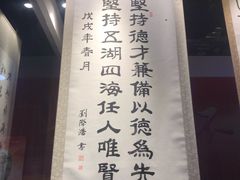 堅持德才兼備以德為先
堅持五湖四海任人唯賢
戊戌年春月
劉隆潘書